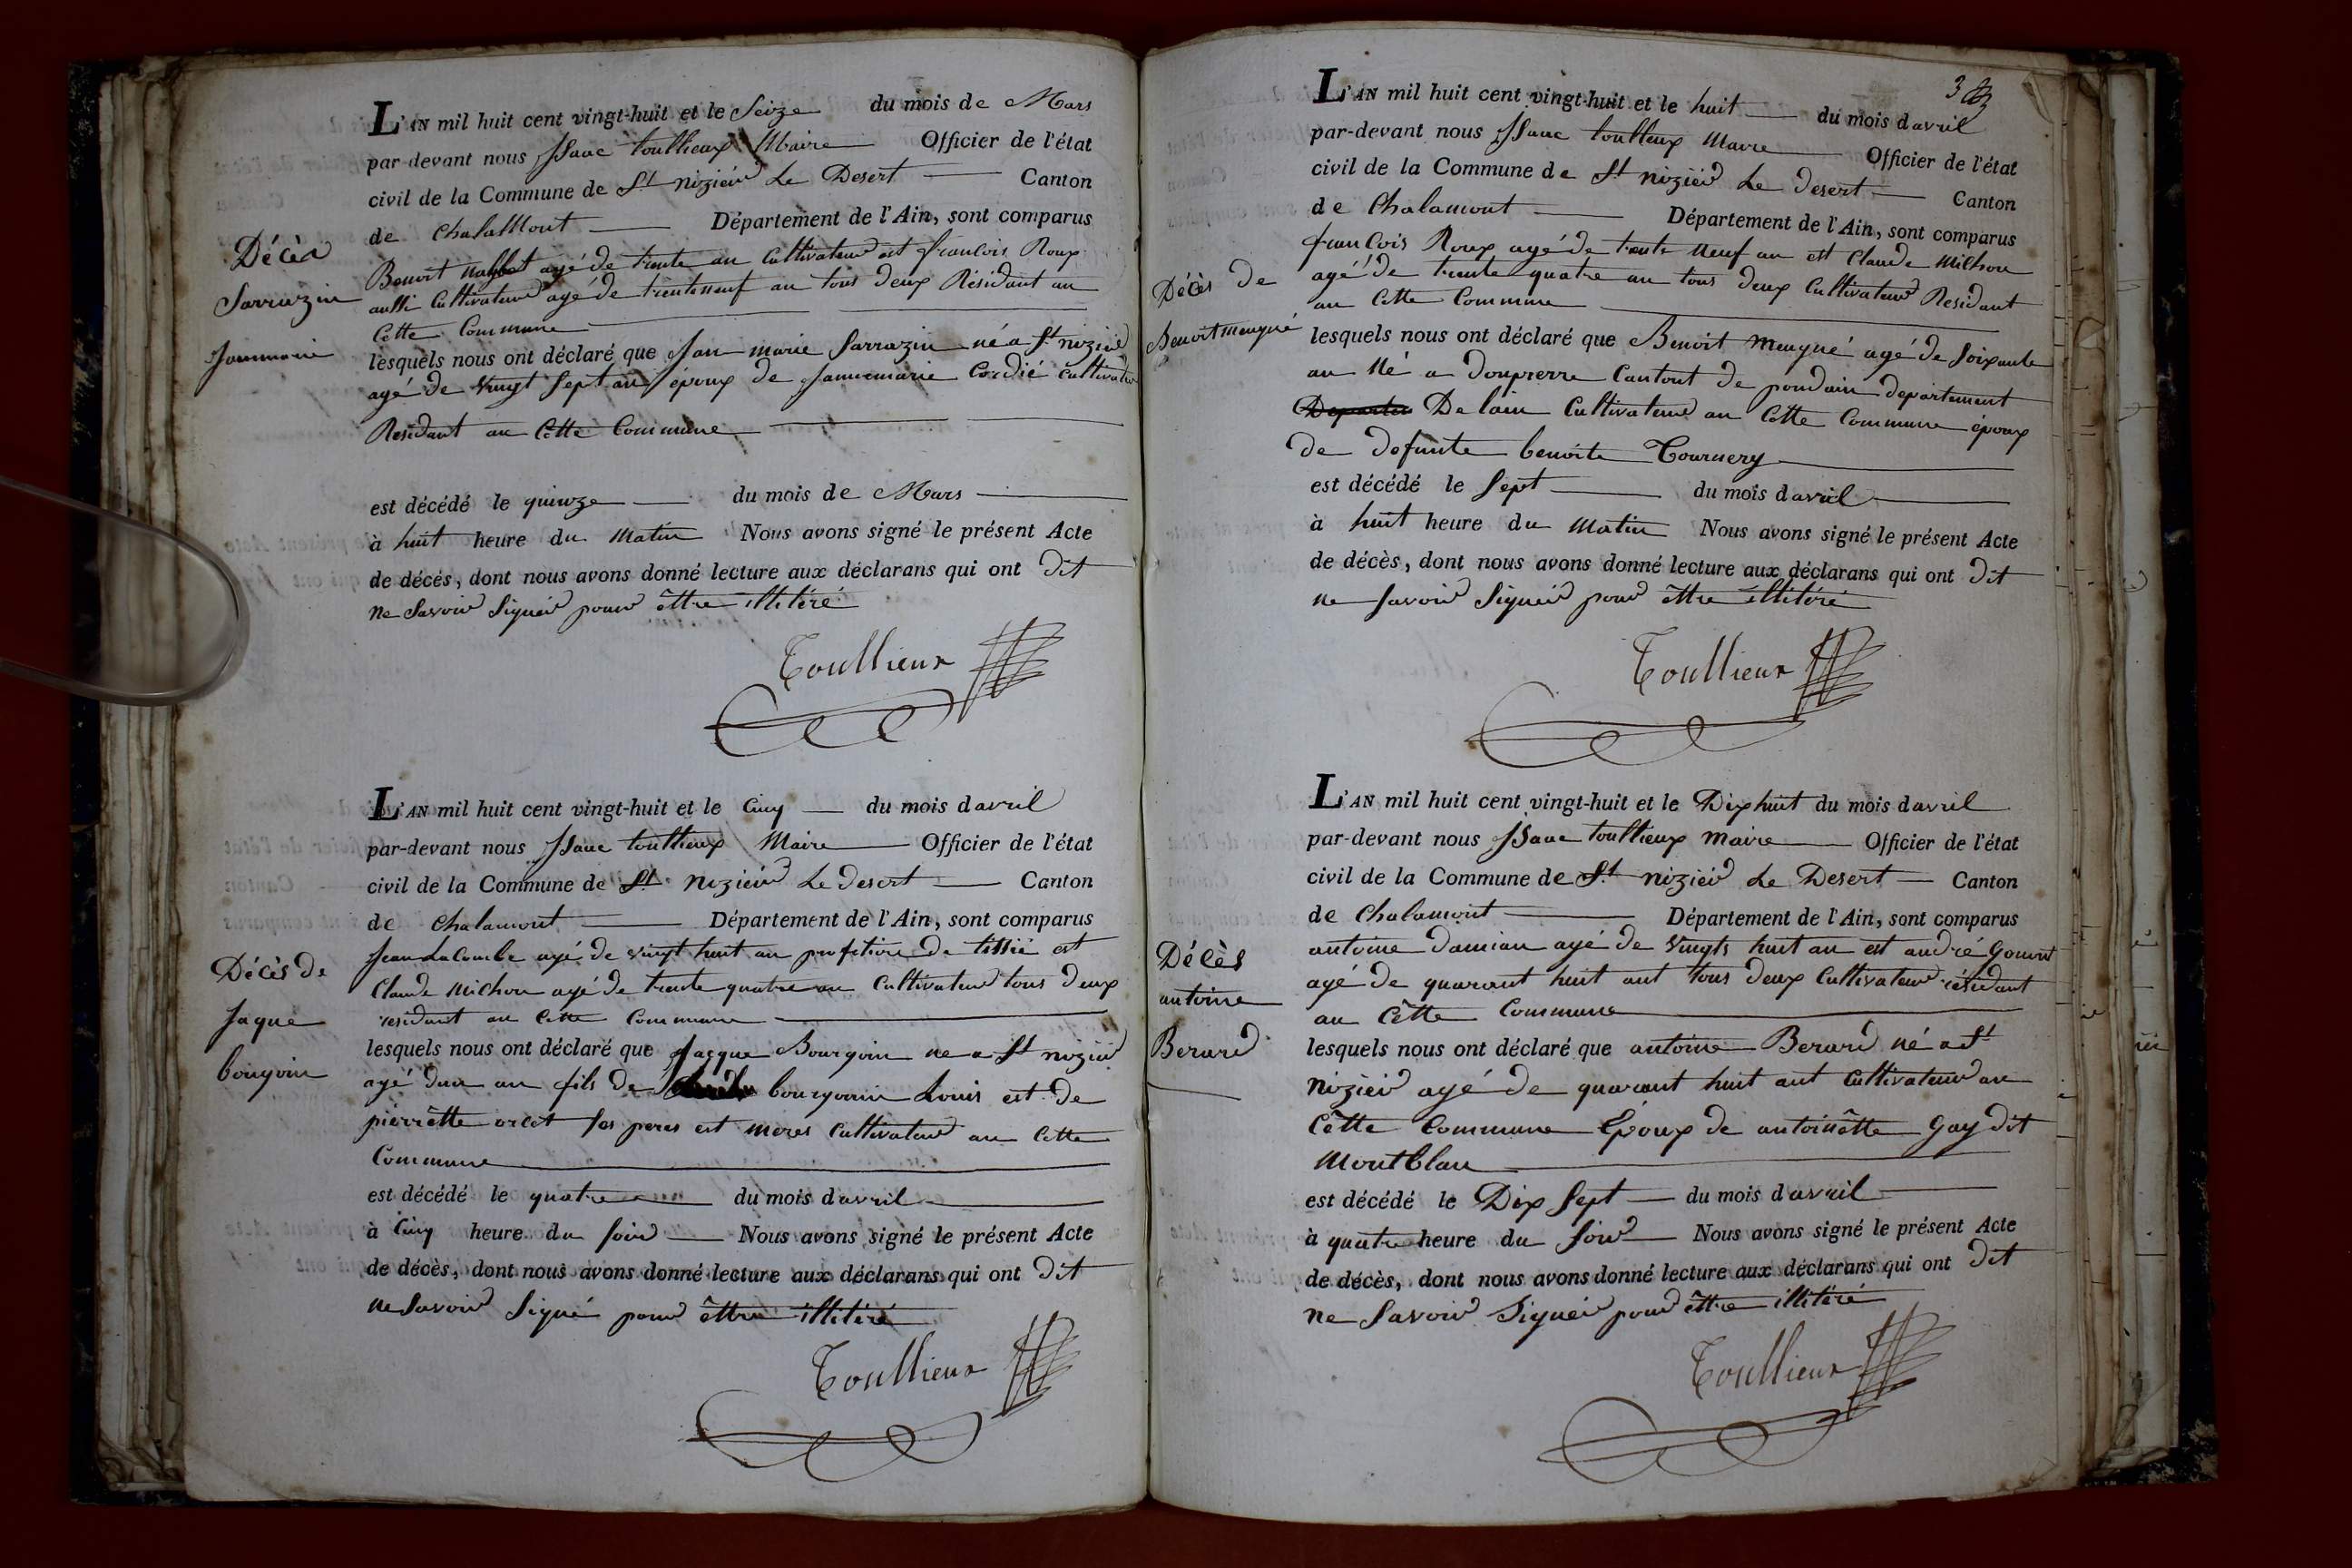 L'AN mil huit cent vingt-huit et le Seize du mois de Mars
par-devant nous Isaac toullieux Maire Officier de l'état
civil de la Commune de St nizieid Le Desert Canton
de ChalaMont Département de l'Ain, sont comparus
Benoit agé de trente an Cultivateur est francois Roux
aussi Cultivateur agé de trenteneuf an tous deux Résidant an
Cette Commune
Décès
Sarrazin
Janmarie
lesquels nous ont déclaré que Jan marie Sarrazin né a St nizieid
agé de vingt sept an époux de Jannemarie Cordié cultivateur
Residant an Cette Commune
est décédé le quinze du mois de Mars
à huit heure du Matin Nous avons signé le présent Acte
de décès, dont nous avons donné lecture aux déclarans qui ont dit
ne Savoir Signér pour êttre illitéré
Toullieux
L'AN mil huit cent vingt-huit et le Cinq du mois d avril
par-devant nous Isaac toullieux Maire Officier de l'état
civil de la Commune de St nizieid Le desert Canton
de chalamont Département de l'Ain, sont comparus
Jean LaCombe agé de vingt huit an profetion de tissié est
Claude Michon agé de trente quatre an Cultivateur tous deux
residant an Cette Commune
Décès de
Jaque
bougoin
lesquels nous ont déclaré que Jacque Bourgoin ne a St nizieid
agé dun an fils de bourgouin Louis est de
pierrêtte orcet ses peres est meres Cultivateur an Cette
Commune
est décédé le quatre du mois d avril
à Cinq heure du soir Nous avons signé le présent Acte
de décès, dont nous avons donné lecture aux déclarans qui ont Dit
ne Savoir Signé pour êttre illitéré
Toullieux
3
L'AN mil huit cent vingt-huit et le huit du mois d avril
par-devant nous Isaac toullieux Maire Officier de l'état
civil de la Commune de St nizieid Le desert Canton
de Chalamont Département de l'Ain, sont comparus
francois Roux agé de trente neuf an est Claude Michon
agé de trente quatre an tous deux Cultivateur Residant
an Cette Commune
Décès de
Benoit mengné
lesquels nous ont déclaré que Benoit mengné agé de soixante
an né a donpierre Cantont de pondain departement
De lain Cultivateur an Cette Commune époux
de defunte benoite Tournery
est décédé le Sept du mois d avril
à huit heure du Matin Nous avons signé le présent Acte
de décès, dont nous avons donné lecture aux déclarans qui ont Dit
ne savoir Signér pour êttre illitéré
Toullieux
L'AN mil huit cent vingt-huit et le Dix huit du mois d avril
par-devant nous Isaac toullieux maire Officier de l'état
civil de la Commune de St nizieid Le Desert Canton
de Chalamont Département de l'Ain, sont comparus
antoine damian agé de vingts huit an est andré
agé de quarant huit ant tous deux Cultivateur résidant
an Cêtte Commune
Décès
antoine
Berard
lesquels nous ont déclaré que antoine Berard né a St
nizieid agé de quarant huit ant Cultivateur an
Cêtte Commune Epoux de antoinêtte Gay dit
Montblan
est décédé le Dix Sept du mois d avril
à quatre heure du soir Nous avons signé le présent Acte
de décès, dont nous avons donné lecture aux déclarans qui ont Dit
ne Savoir Signér pour êttre illitéré
Toullieux